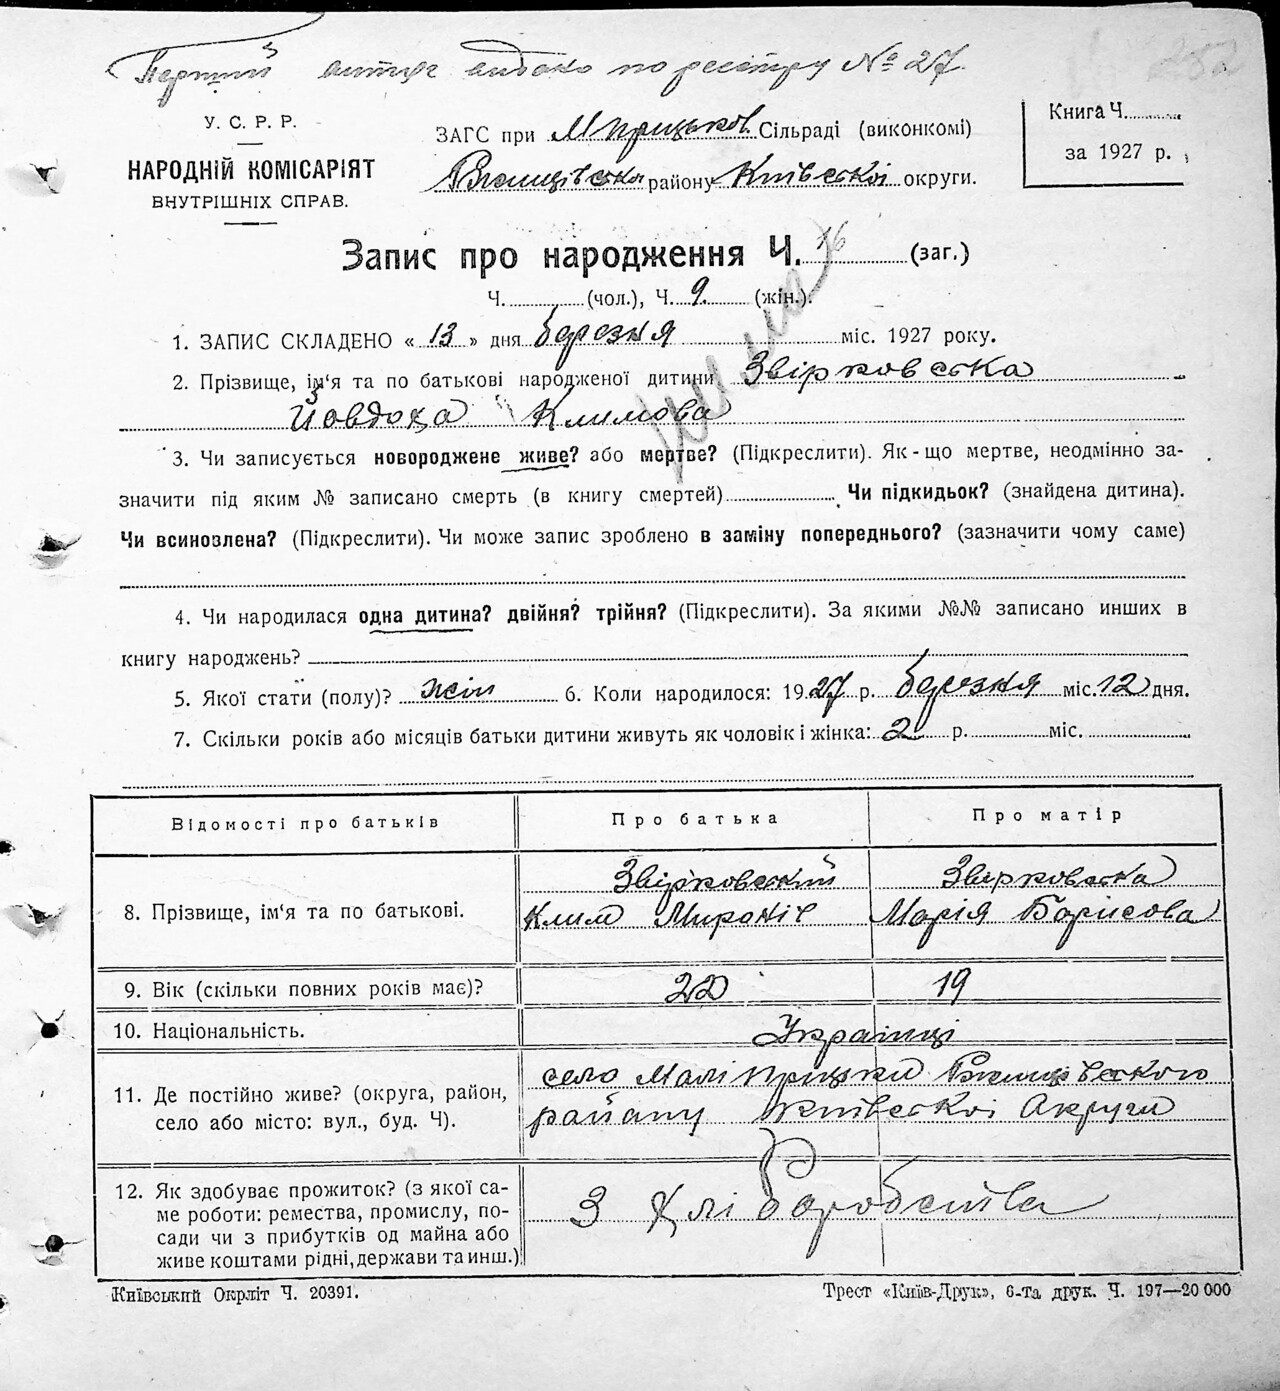 Перший витяг видано по реєстру № 27
У. С. Р. Р.
НАРОДНІЙ КОМІСАРІЯТ
ВНУТРІШНІХ СПРАВ.
ЗАГС при М Прицьков Сільраді (виконкомі)
району Київської округи.
Книга Ч.
за 1927 р.
Запис про народження Ч. 16 (заг.)
Ч. (чол.), Ч. 9. (жін.).
1. ЗАПИС СКЛАДЕНО « 13 » дня березня міс. 1927 року.
2. Прізвище, ім'я та по батькові народженої дитини Звірковська
Йовдоха Климова
3. Чи записується новороджене живе? або мертве? (Підкреслити). Як-що мертве, неодмінно за-
значити під яким № записано смерть (в книгу смертей) Чи підкидьок? (знайдена дитина).
Чи всиновлена? (Підкреслити). Чи може запис зроблено в заміну попереднього? (зазначити чому саме)
4. Чи народилася одна дитина? двійня? трійня? (Підкреслити). За якими №№ записано инших в
книгу народжень?
5. Якої стати (полу)? жін 6. Коли народилося: 1927 р. березня міс. 12 дня.
7. Скільки років або місяців батьки дитини живуть як чоловік і жінка: 2 р. міс.
Відомості про батьків Про батька Про матір
8. Прізвище, ім'я та по батькові.
Звірковский
Клим Миронів
Звірковська
Марія Борисова
9. Вік (скільки повних років має)? 22 19
10. Національність. Українці
11. Де постійно живе? (округа, район,
село або місто: вул., буд. Ч).
село Малі Прицьки
району Київської Округи
12. Як здобуває прожиток? (з якої са-
ме роботи: ремества, промислу, по-
сади чи з прибутків од майна або
живе коштами рідні, держави та инш.)
З Хліборобства
Київський Окрліт Ч. 20391.
Трест «Київ-Друк», 6-та друк. Ч. 197—20 000